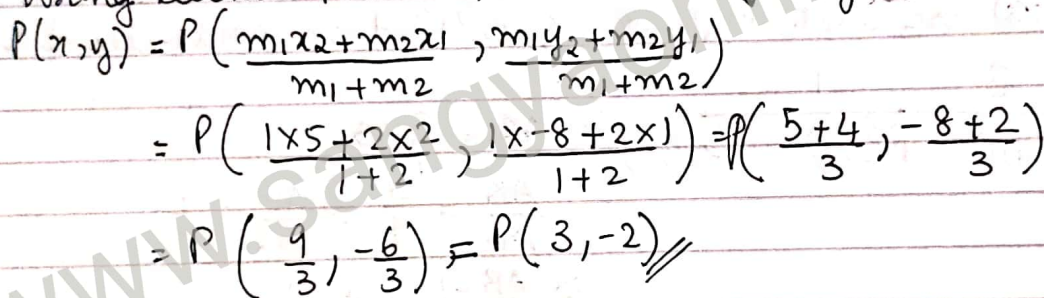 P(x,y) = P( (m1x2+m2x1)/(m1+m2) , (m1y2+m2y1)/(m1+m2) )
= P( (1×5+2×2)/(1+2) , (1×-8+2×1)/(1+2) ) = P( (5+4)/3 , (-8+2)/3 )
= P( 9/3 , -6/3 ) = P(3,-2)//